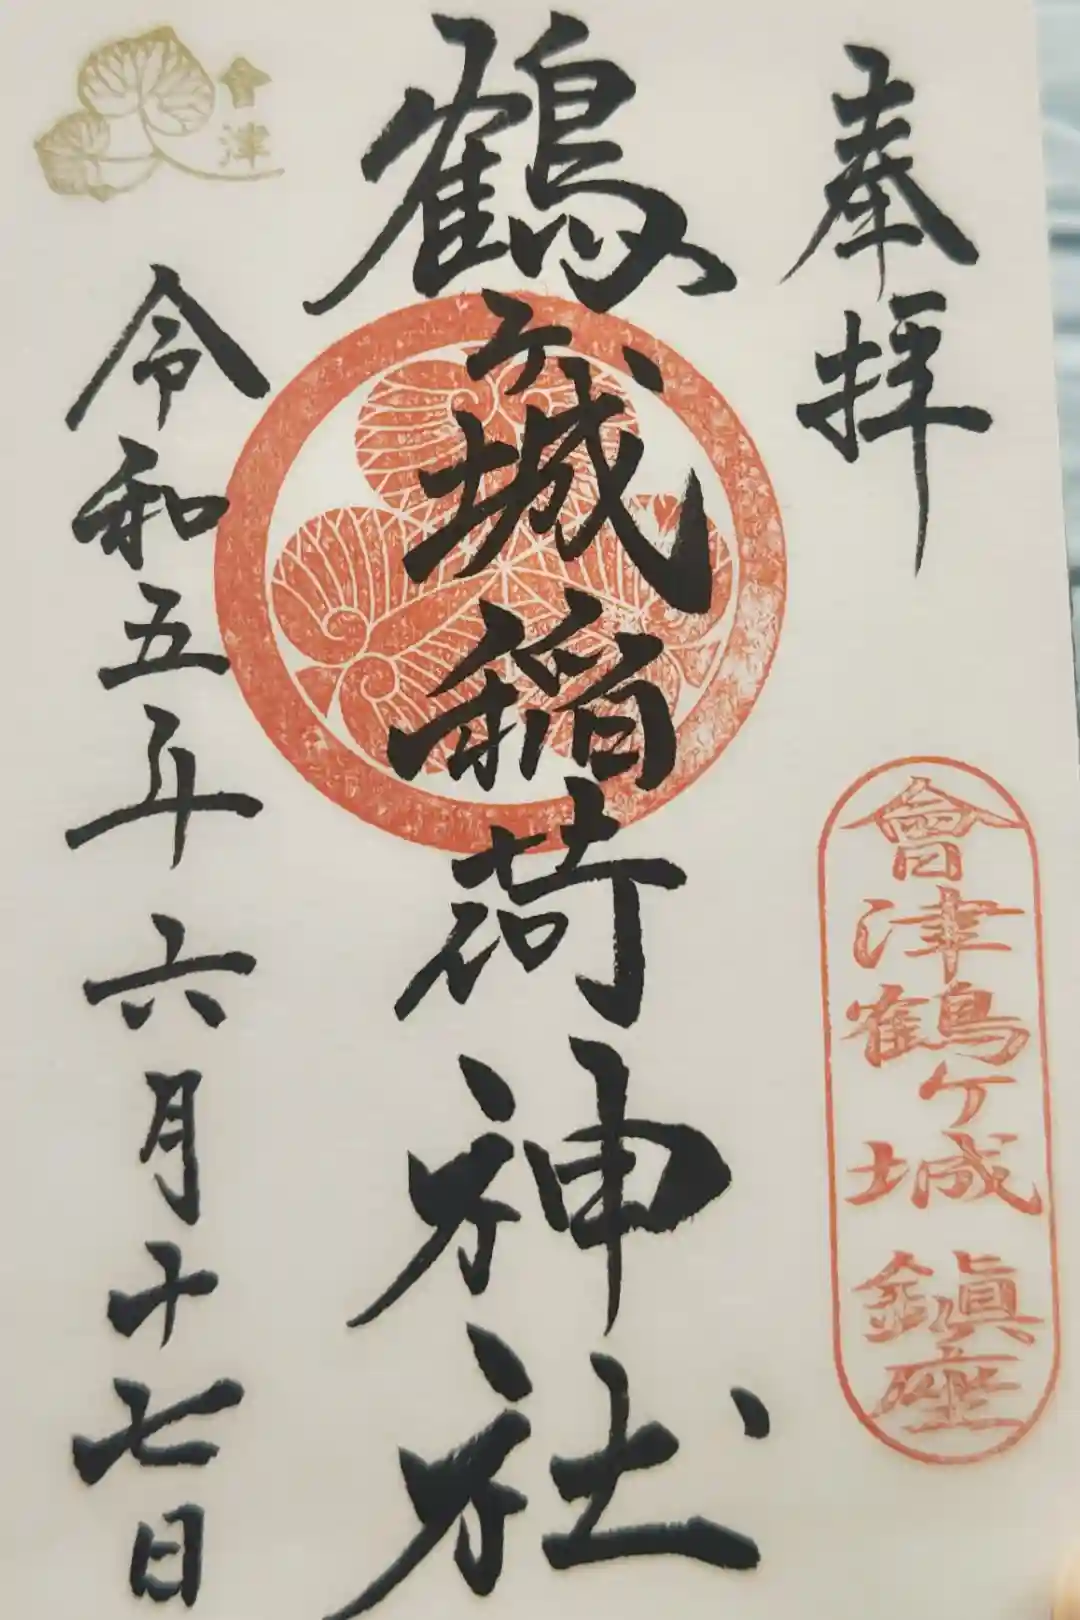 奉拝
會津鶴ヶ城鎮座
鶴ヶ城稲荷神社
會津
令和五年六月十七日